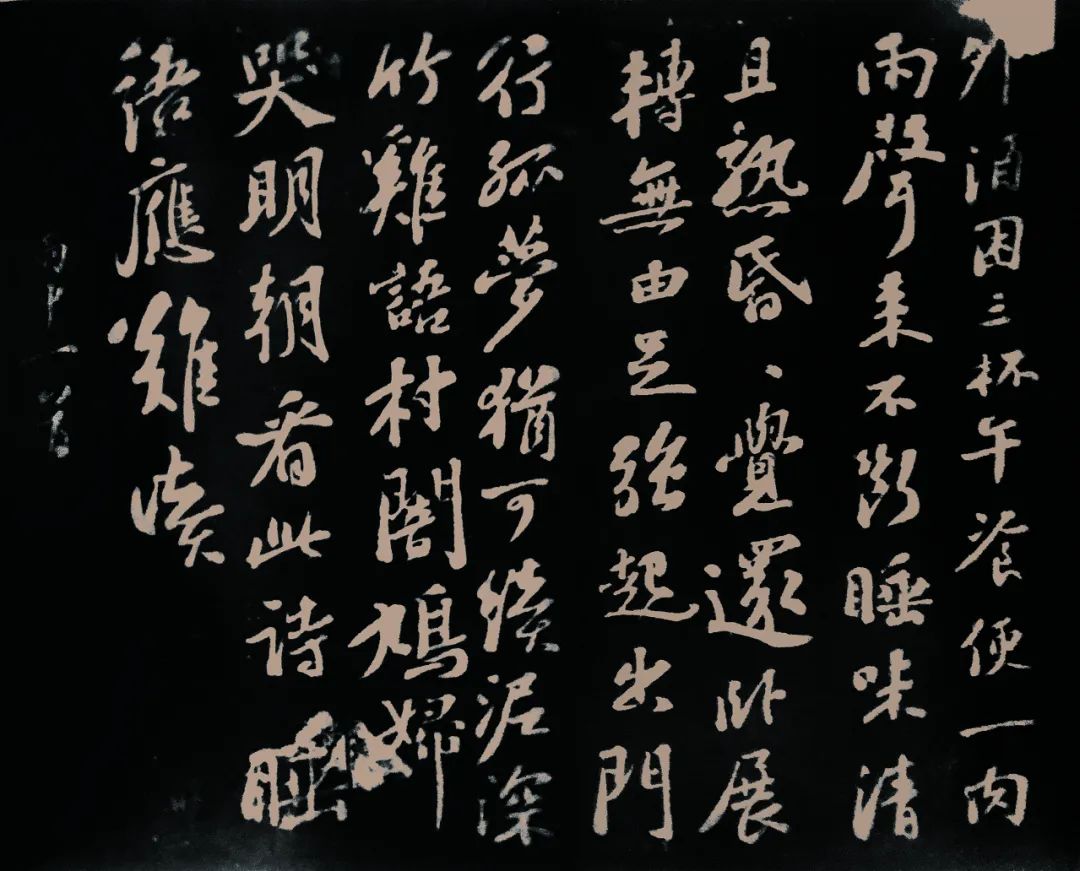 夘酒困三杯午飡便一肉
雨聲来不断睡味清
且熟昏〻覺還卧展
轉無由足強起出門
行孤夢猶可續泥深
竹雞語村闇鳩婦
哭明朝看此詩睡
語應難讀
中一首